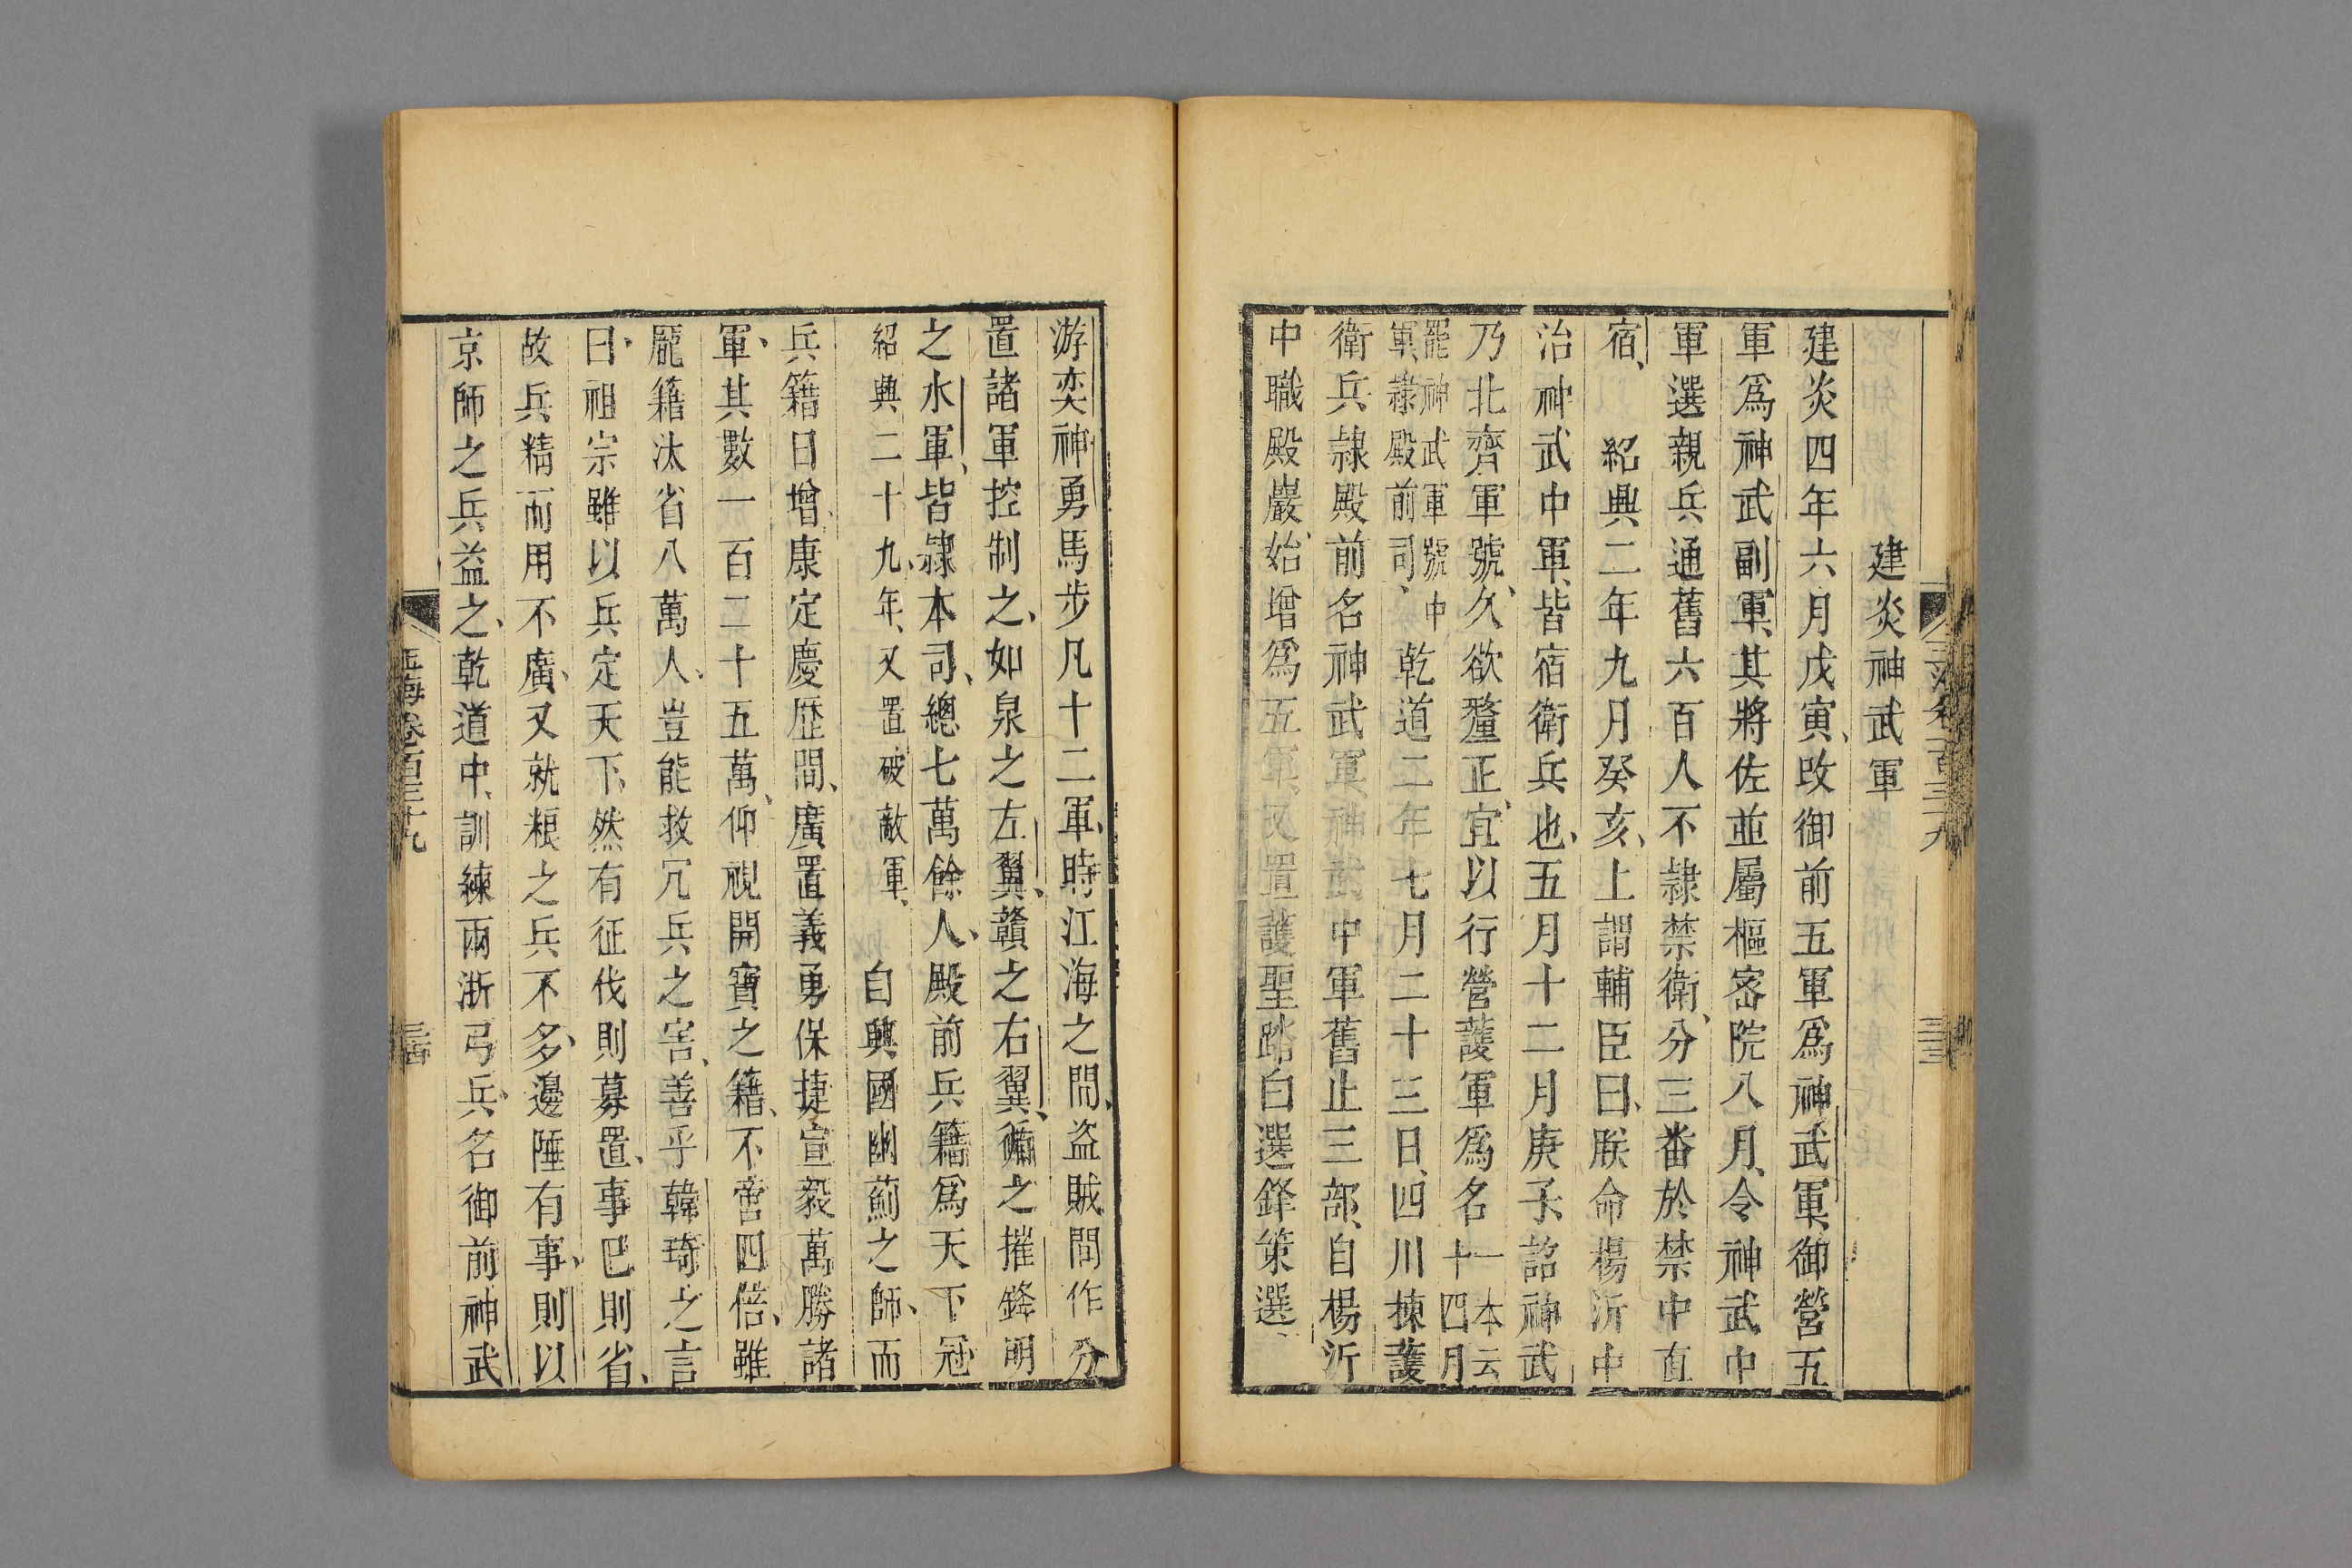 玉海卷一百三十九
三十三
建炎神武軍
建炎四年六月戊寅、改御前五軍爲神武軍、御營五
軍爲神武副軍、其將佐並屬樞密院八月、令神武中
軍選親兵通舊六百人不隸禁衛、分三番於禁中直
宿、紹興二年九月癸亥、上謂輔臣曰、朕命楊沂中
治神武中軍、皆宿衛兵也、五月十二月庚子詔神武
乃北齊軍號、久欲釐正、宜以行營護軍爲名一本云十四月
罷神武軍號中軍隸殿前司、乾道二年七月二十三日、四川揀護
衛兵隸殿前名神武軍神武中軍舊止三部、自楊沂
中職殿巖、始增爲五軍、又置護聖踏白選鋒策選、
游奕神勇馬步凡十二軍、時江海之間、盜賊間作分
置諸軍控制之、如泉之左翼、贛之右翼、循之摧鋒明
之水軍、皆隸本司、總七萬餘人、殿前兵籍爲天下冠
紹興二十九年、又置破敵軍、自興國幽薊之師、而
兵籍日增、康定慶歷間、廣置義勇保捷宣毅萬勝諸
軍、其數一百二十五萬、仰視開寶之籍、不啻四倍、雖
龎籍汰省八萬人、豈能救冗兵之害、善乎韓琦之言
曰、祖宗雖以兵定天下、然有征伐則募置、事已則省、
故兵精而用不廣、又就糧之兵不多、邊陲有事、則以
京師之兵益之、乾道中、訓練兩浙弓兵、名御前神武
玉海卷一百三十九
三十四